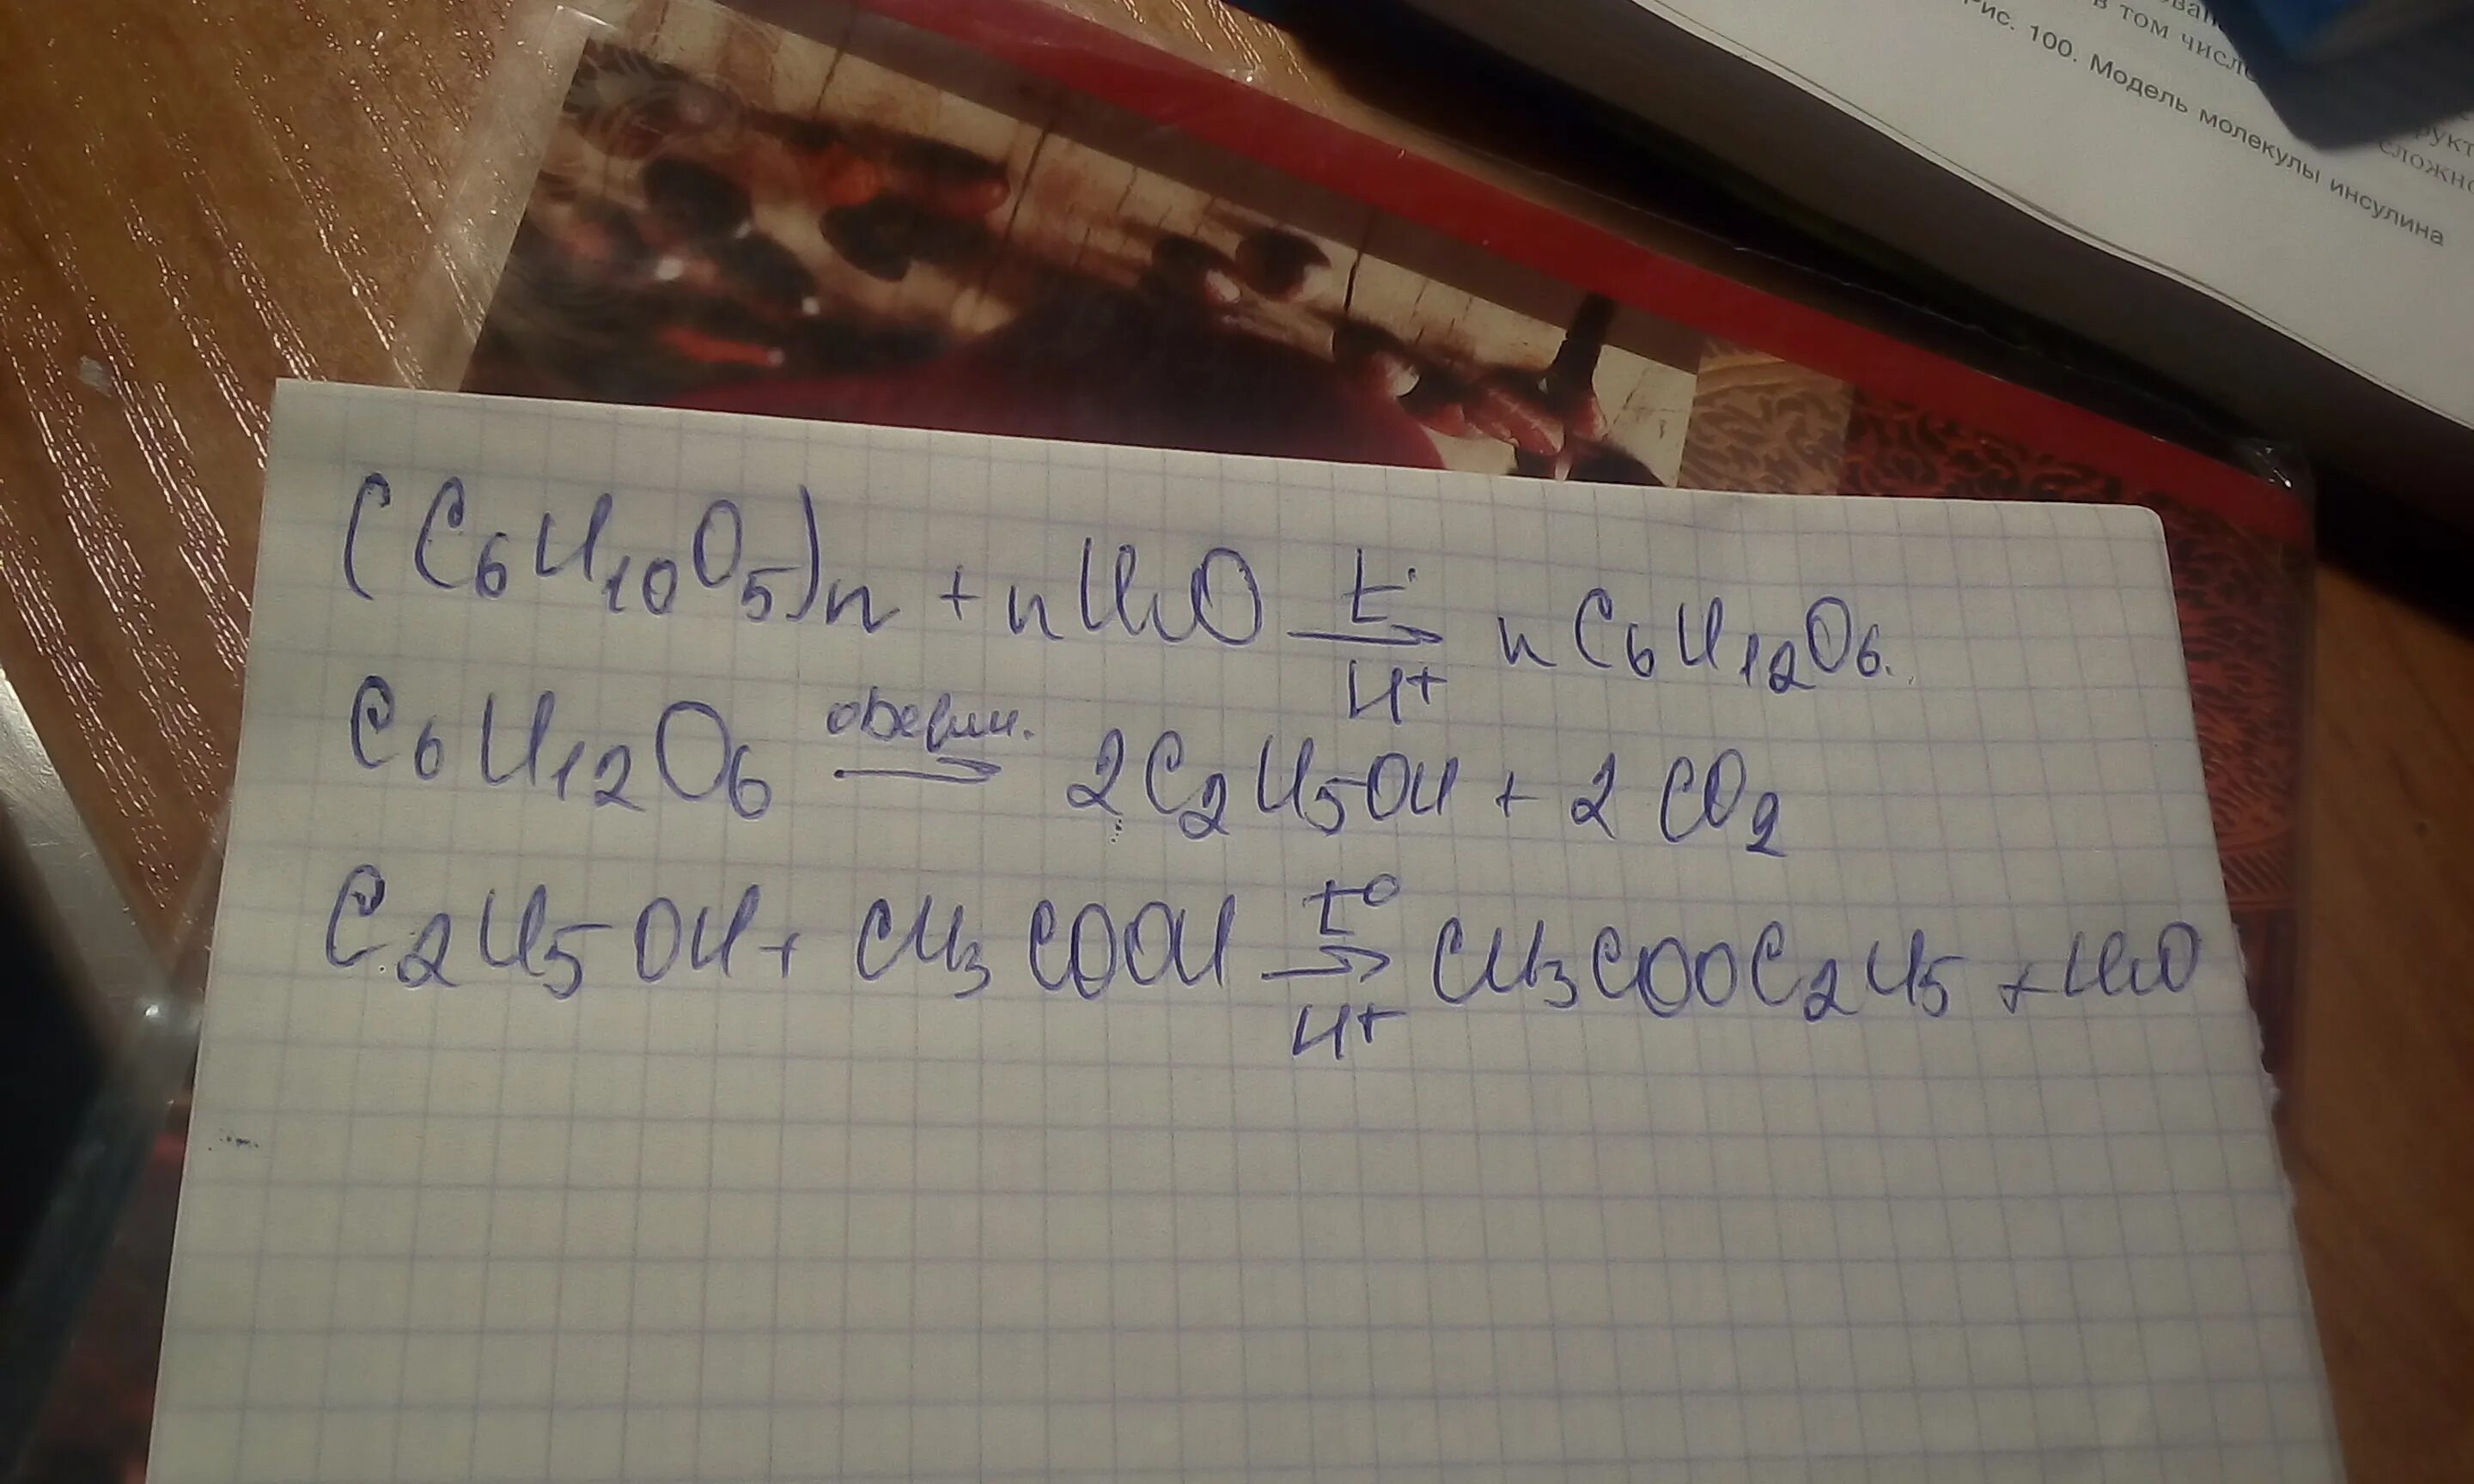 в том числе
Рис. 100. Модель молекулы инсулина
(C6H10O5)n + nH2O t° → H+ nC6H12O6.
C6H12O6 → 2C2H5OH + 2CO2
C2H5OH + CH3COOH t° → H+ CH3COOC2H5 + H2O